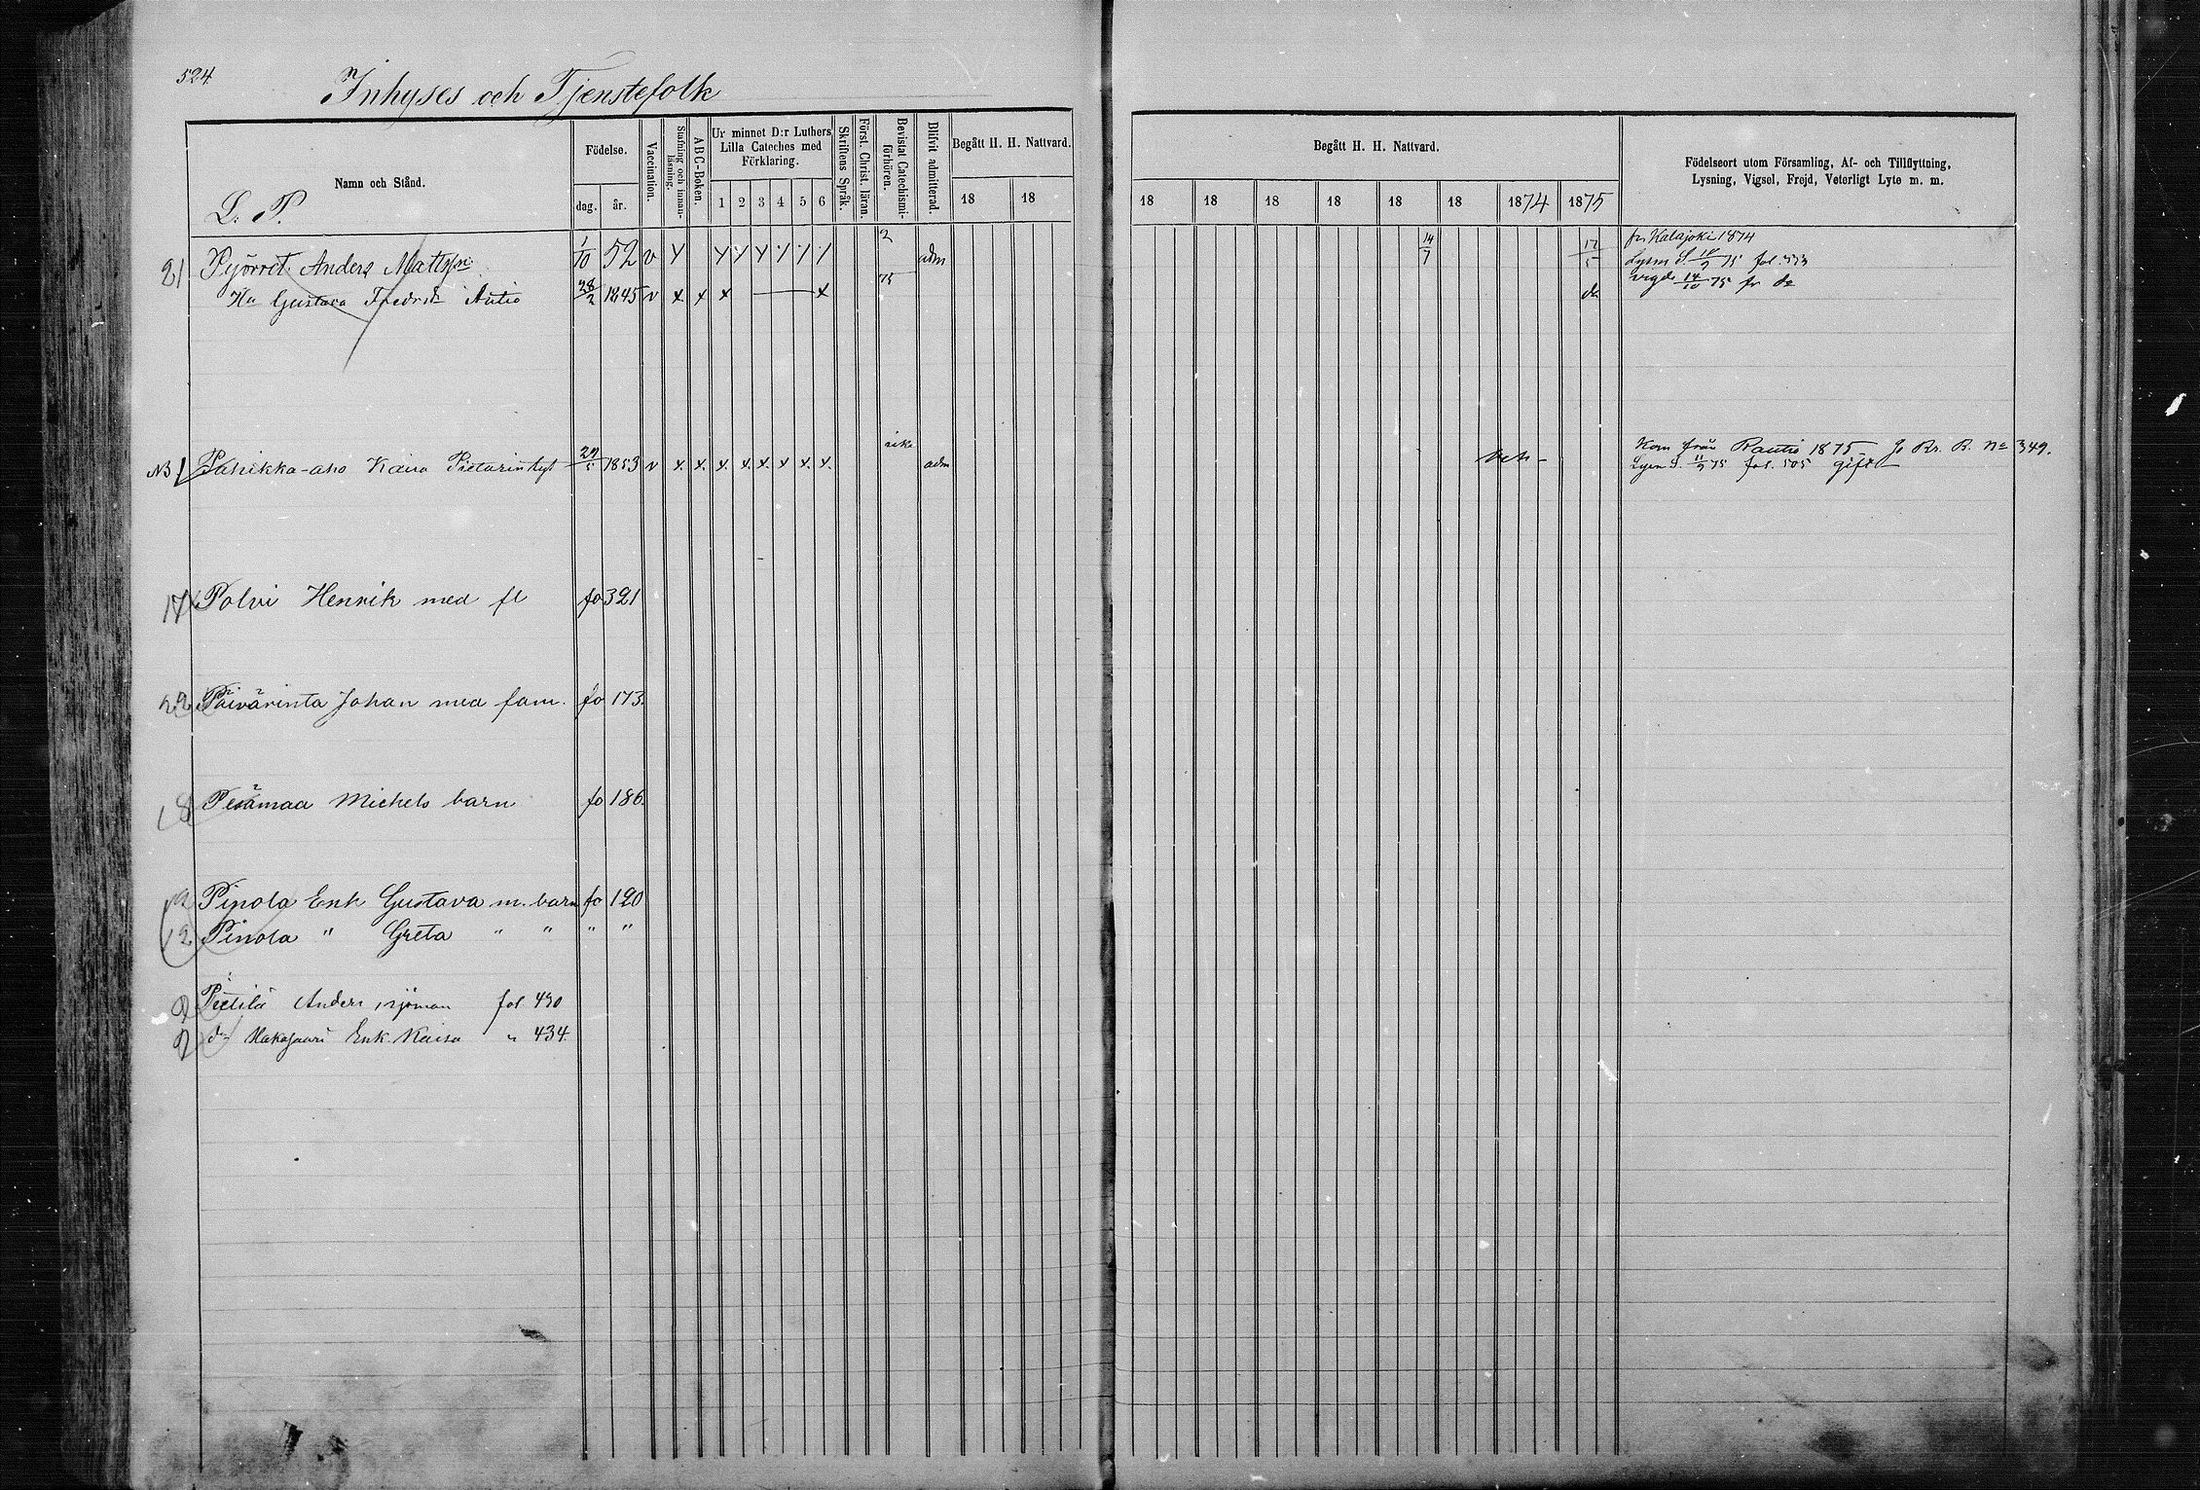 524
Inhyses och Tjenstefolk
Namn och Stånd.
L. P.
Födelse.
dag. år.
Vaccination.
Stafning och innanläsning.
ABC-Boken.
Ur minnet D:r Luthers Lilla Cateches med Förklaring.
1 2 3 4 5 6
Skriftens Språk.
Först. Christ. läran.
Bevistat Catechismiförhören.
Blifvit admitterad.
Begått H. H. Nattvard.
18 18
Begått H. H. Nattvard.
18 18 18 18 18 18 1874 1875
Födelseort utom Församling, Af- och Tillflyttning,
Lysning, Vigsel, Frejd, Veterligt Lyte m. m.
21 Pyörret Anders Mattsson 1/10 52 v adm 14/7 17/5 fr Kalajoki 1874
Lysn S 75 fol. 333
Hu Gustava Fredrik Autio 28/2 1845 v x x x x do vigde 14/10 75 fr do
75
NB 1 Pahikka-aho Kaisa Pietarintyt 29/5 1853 v x. x. x. x. x. x. x. x. adm Kom från Rautio 1875 Jo Kr. B. No 349.
Lysn S. 11/9 75 fol. 505 gift
17 Polvi Henrik med fl fo 321
22 Päivärinta Johan med fam. fo 173.
18 Perämaa Michels barn fo 186.
12 Pinola Enk Gustava m. barn fo 120
12 Pinola " Greta " " " "
Pietilä Anders sjöman fol. 430
do Hakasaari Enk. Kaisa " 434.